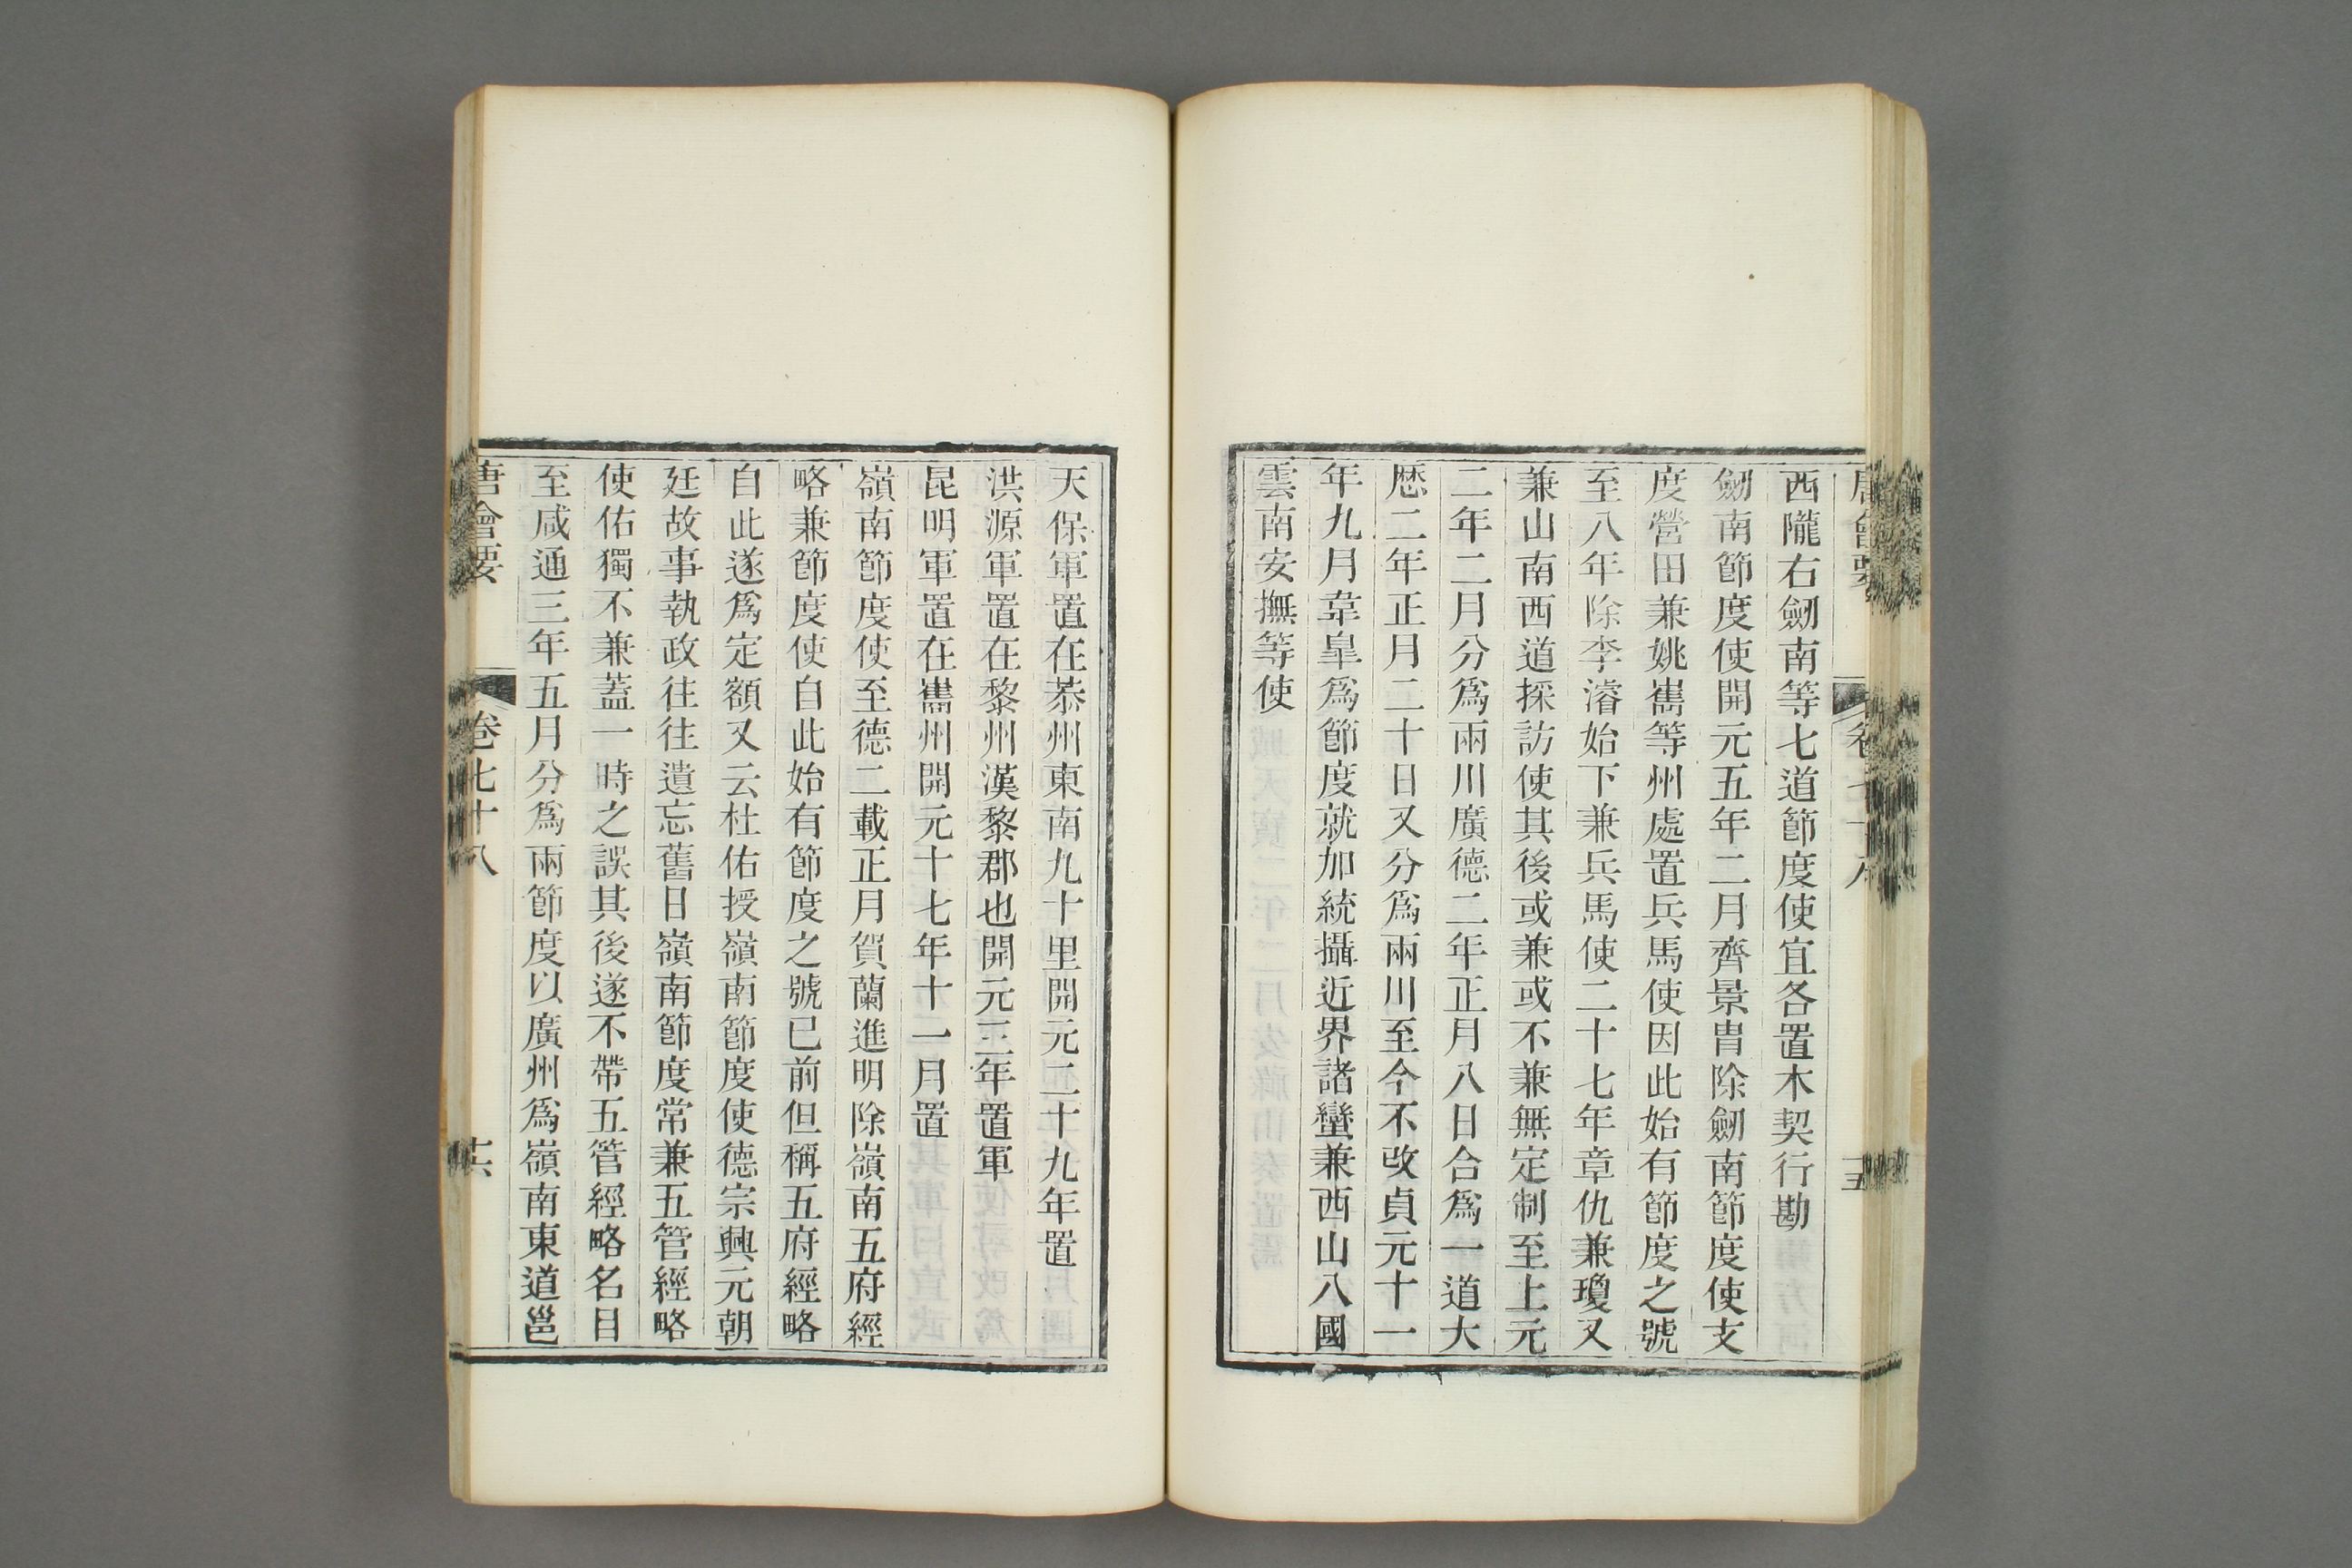 西隴右劒南等七道節度使宜各置木契行勘
劒南節度使開元五年二月齊景胄除劒南節度使支
度營田兼姚嶲等州處置兵馬使因此始有節度之號
至八年除李濬始下兼兵馬使二十七年章仇兼瓊又
兼山南西道採訪使其後或兼或不兼無定制至上元
二年二月分爲兩川廣德二年正月八日合爲一道大
歴二年正月二十日又分爲兩川至今不改貞元十一
年九月韋臯爲節度就加統攝近界諸蠻兼西山八國
雲南安撫等使
天保軍置在恭州東南九十里開元二十九年置
洪源軍置在黎州漢黎郡也開元三年置軍
昆明軍置在嶲州開元十七年十一月置
嶺南節度使至德二載正月賀蘭進明除嶺南五府經
略兼節度使自此始有節度之號已前但稱五府經略
自此遂爲定額又云杜佑授嶺南節度使德宗興元朝
廷故事執政往往遺忘舊日嶺南節度常兼五管經略
使佑獨不兼蓋一時之誤其後遂不帶五管經略名目
至咸通三年五月分爲兩節度以廣州爲嶺南東道邕
唐會要
卷七十八